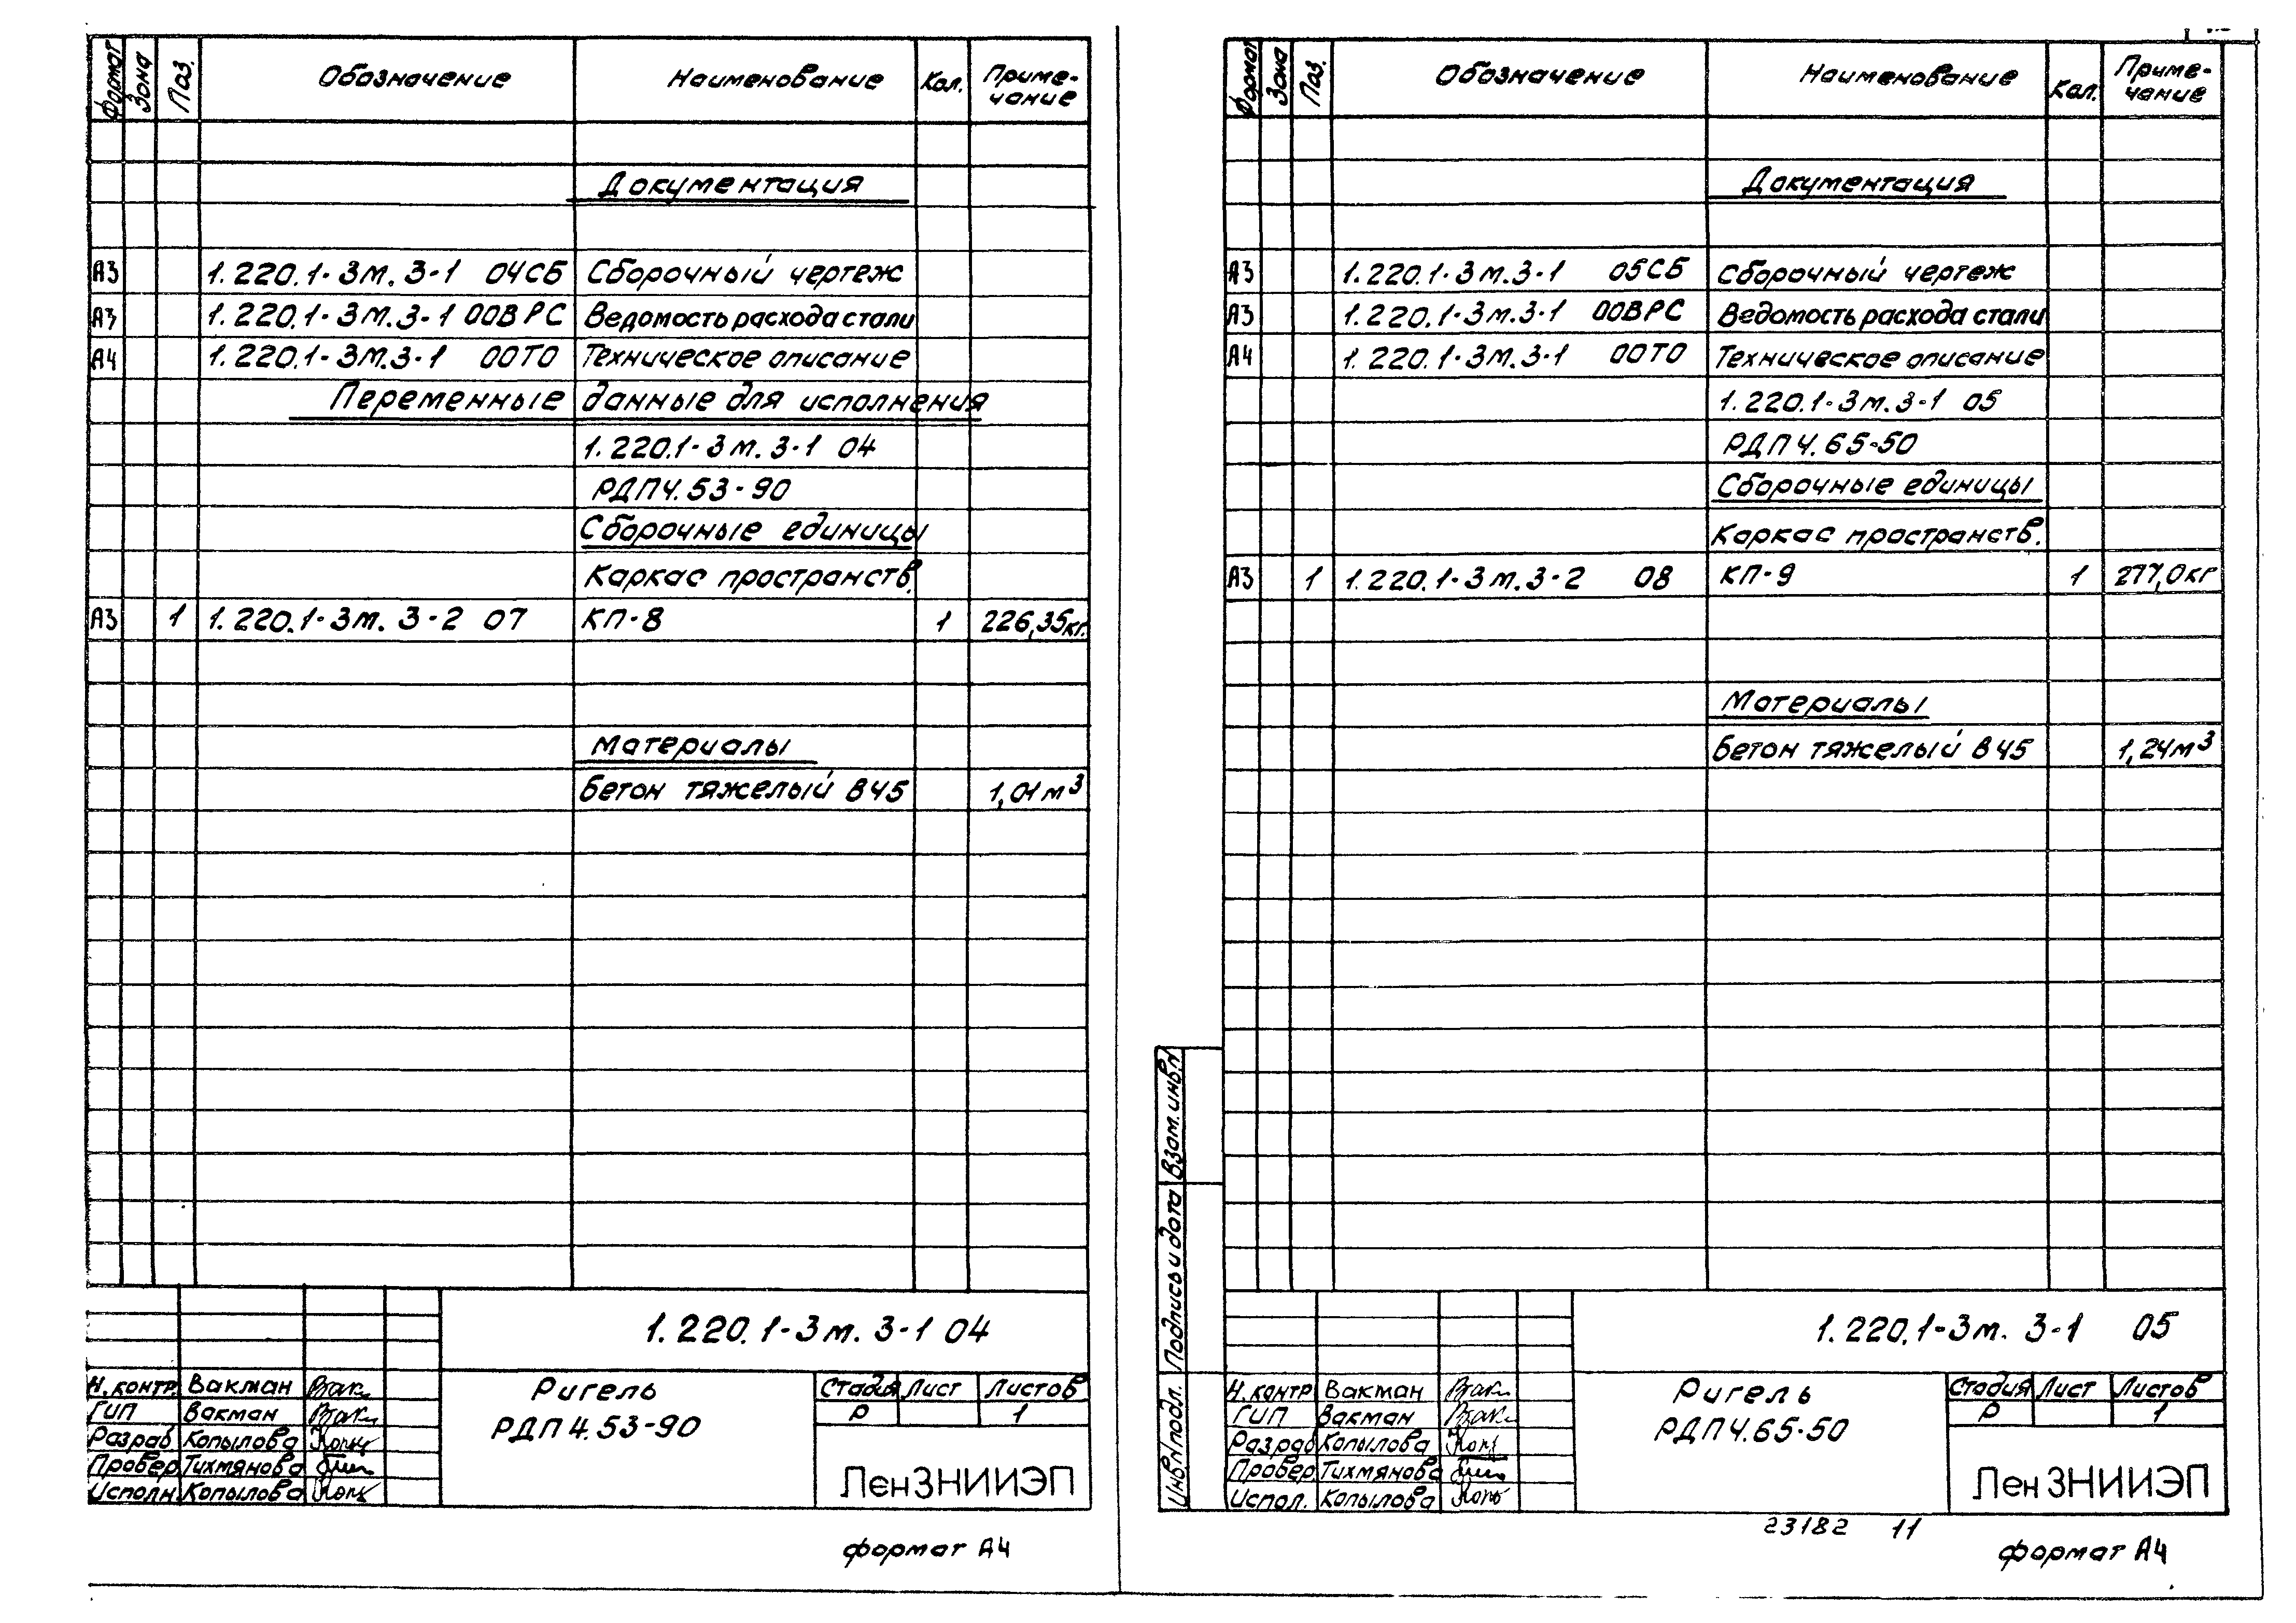 Формат Зона Поз. Обозначение Наименование Кол. Приме-
чание
Документация
А3 1.220.1-3м.3-1 04СБ Сборочный чертеж
А3 1.220.1-3м.3-1 00ВРС Ведомость расхода стали
А4 1.220.1-3м.3-1 00ТО Техническое описание
Переменные данные для исполнения
1.220.1-3м.3-1 04
РДП4.53-90
Сборочные единицы
Каркас пространств.
А3 1 1.220.1-3м.3-2 07 КП-8 1 226,35кг.
Материалы
бетон тяжелый В45 1,01м³
1.220.1-3м.3-1 04
Н.контр Вакман
ГИП Вакман
Разраб Копылова
Провер Тихмянова
Исполн. Копылова
Ригель
РДП4.53-90
Стадия Лист Листов
Р 1
ЛенЗНИИЭП
формат А4
Формат Зона Поз. Обозначение Наименование Кол. Приме-
чание
Документация
А3 1.220.1-3м.3-1 05СБ Сборочный чертеж
А3 1.220.1-3м.3-1 00ВРС Ведомость расхода стали
А4 1.220.1-3м.3-1 00ТО Техническое описание
1.220.1-3м.3-1 05
РДП4.65-50
Сборочные единицы
Каркас пространств.
А3 1 1.220.1-3м.3-2 08 КП-9 1 277,0кг
Материалы
бетон тяжелый В45 1,24м³
Взам.инв.N
Подпись и дата
Инв.N подл.
1.220.1-3м.3-1 05
Н.контр Вакман
ГИП Вакман
Разраб Копылова
Провер. Тихмянова
Испол. Копылова
Ригель
РДП4.65-50
Стадия Лист Листов
Р 1
ЛенЗНИИЭП
23182 11
формат А4